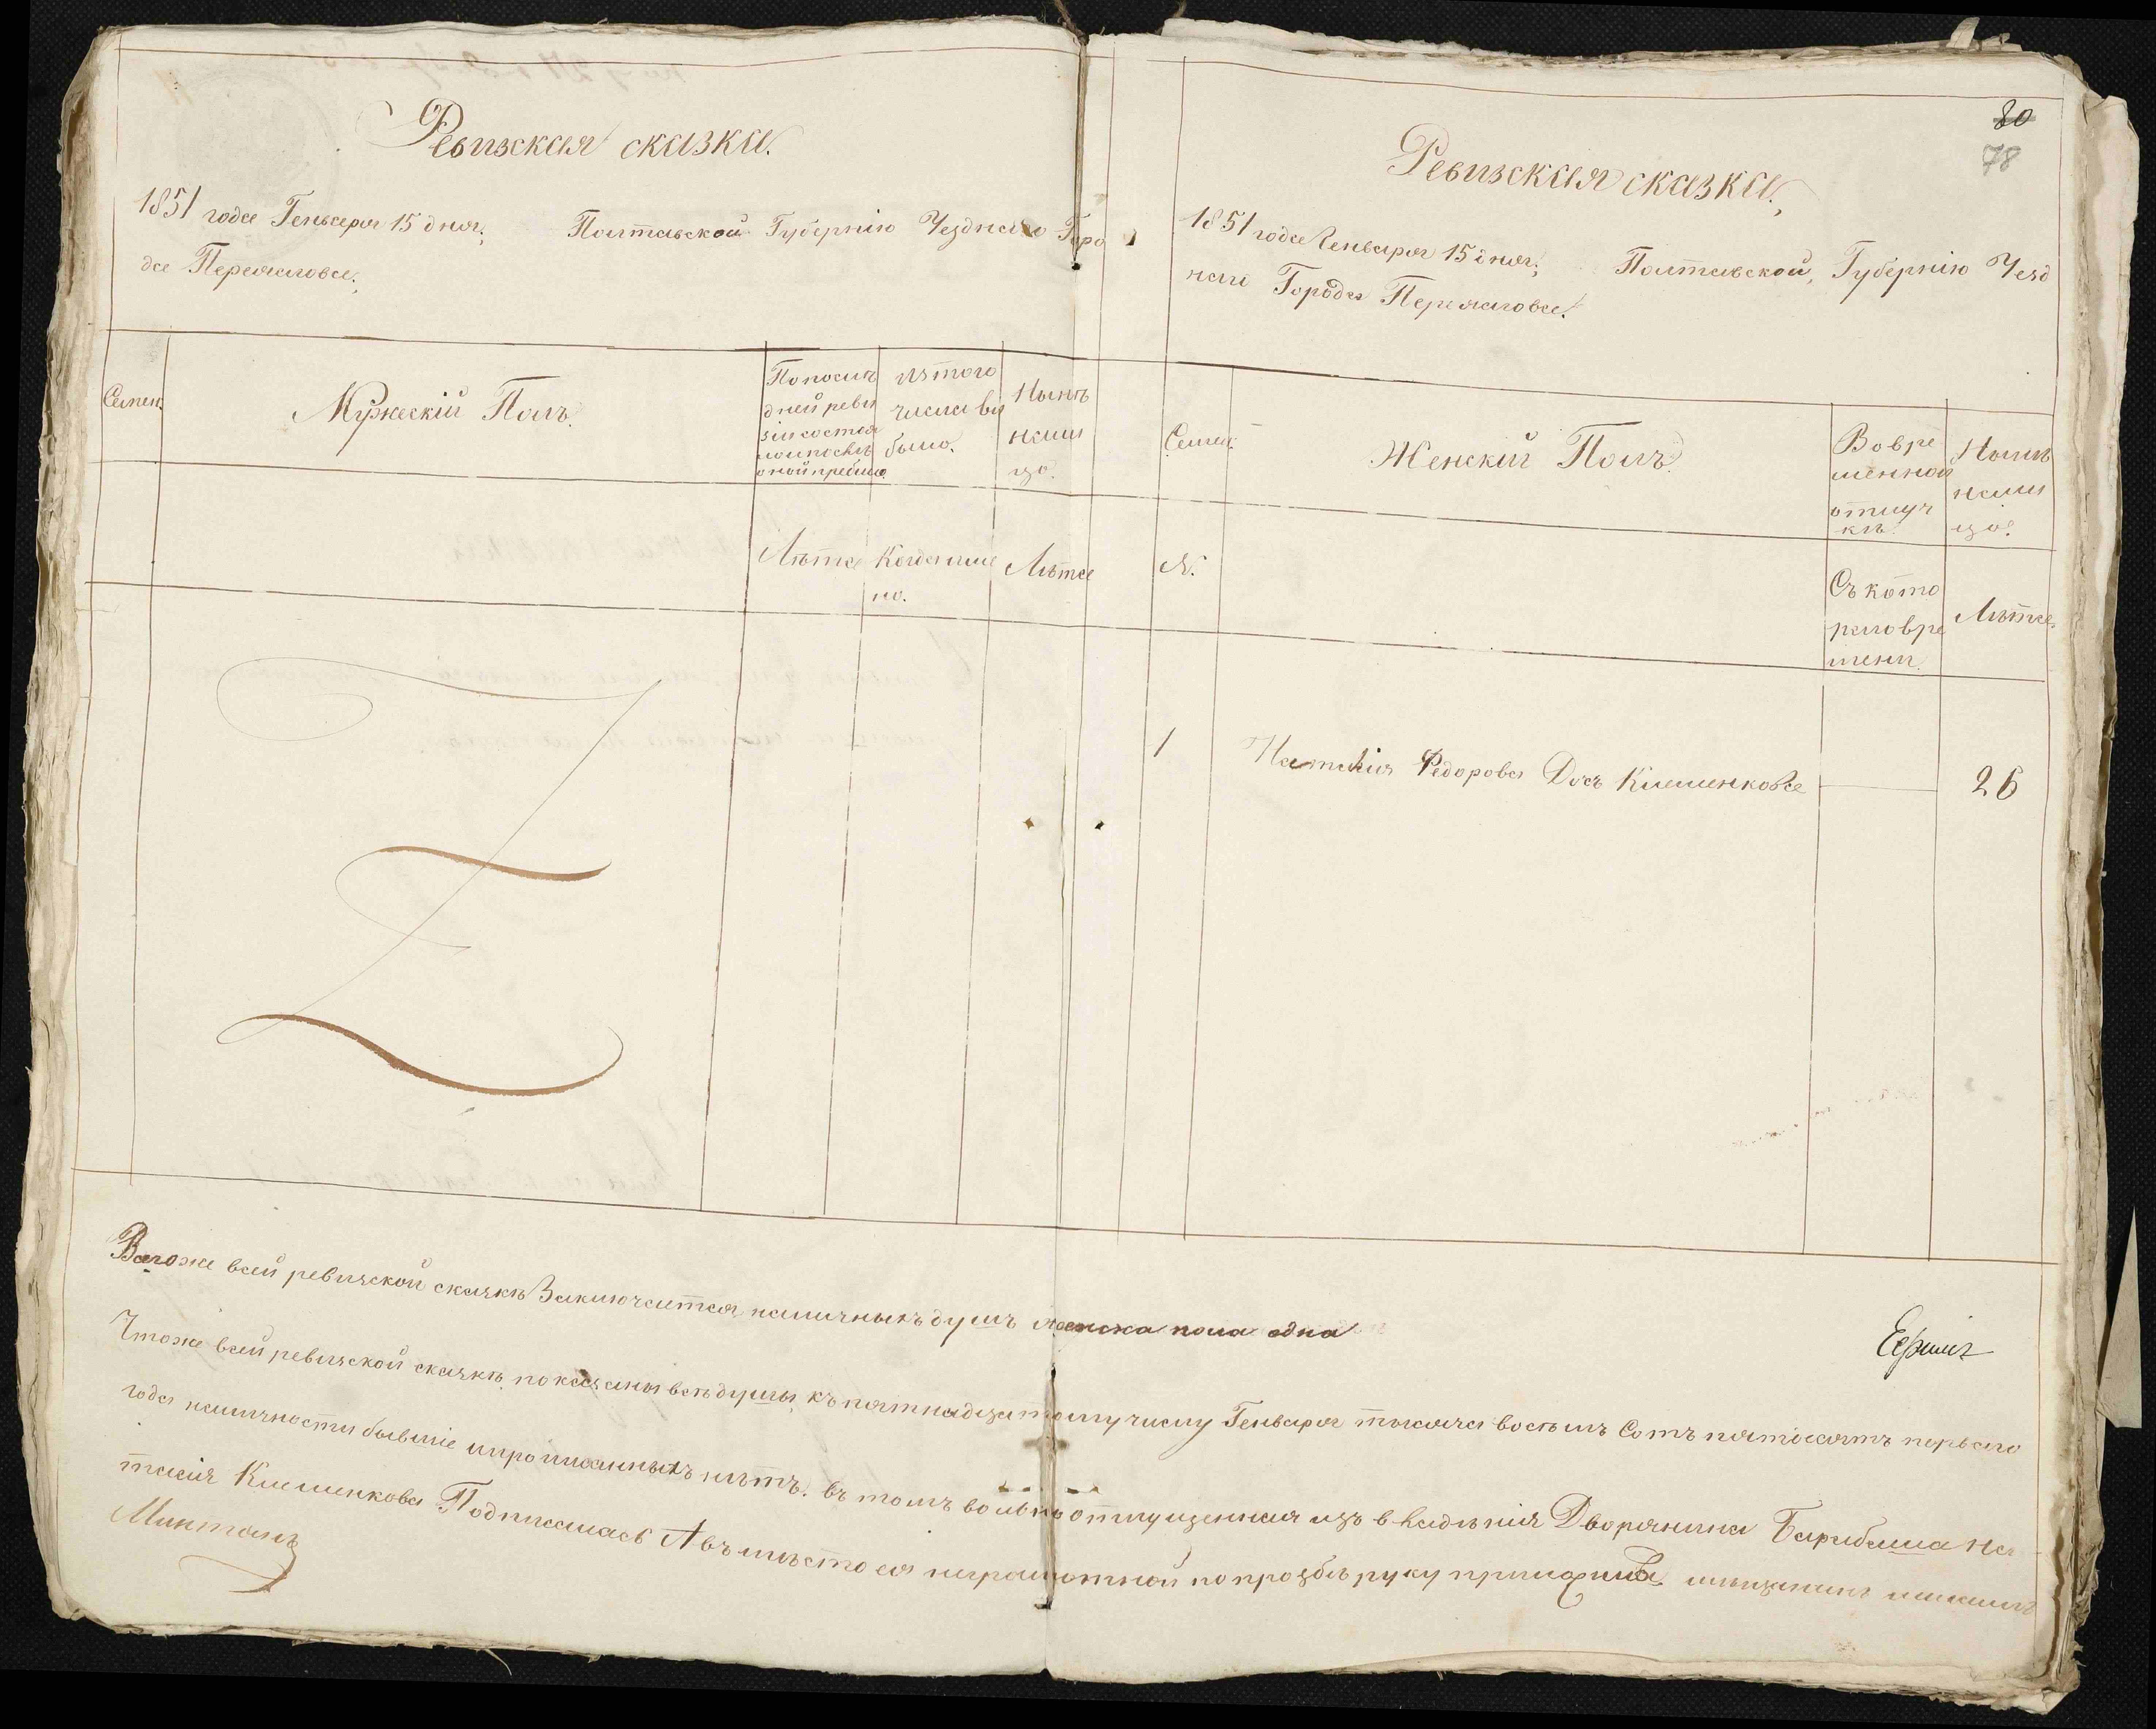 Ревизская сказка.
1851 года Генваря 15 дня. Полтавской Губернію Уезднаго Горо
да Переяслова.
Семеи.
Мужескій Полъ.
Попослѣ
дней реви
зіи состоя
ло и послѣ
оной прибыло.
Изтого
числа вы
было.
Нынѣ
нали
цо.
Лѣта
Когда име
но.
Лѣта
80
78
Ревизская сказка.
1851 года Генваря 15 дня; Полтавской, Губернію Уезд
наго Города Переяслова.
Семеи.
Женскій Полъ.
Вовре
менной
отлуч
кѣ.
Нынѣ
нали
цо.
№.
Съ кото
раго вре
мени.
Лѣта.
1 Наталія Федорова Дочь Клименкова 26
всей ревизской сказкѣ Заключается наличныхъ душъ женска пола одна
Чтоже всей ревизской сказкѣ показаны всѣ душы къ пятнадцатому числу Генваря тысяча восемъ Сотъ пятдесятъ перваго
года наличности бывшіе и прописанныхъ нѣтъ. въ томъ вольно отпущенная изъ владѣнія Дворянина На
талія Клименкова Подписалась А вѣ мѣсто ея неграмотной по прозбѣ руку приложилъ мещанинъ